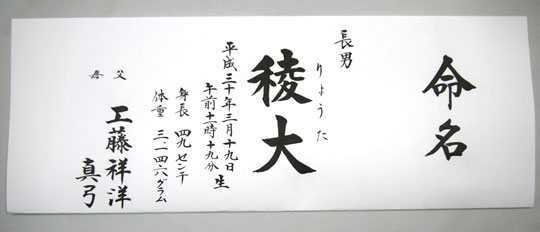 命名
長男
りょうた
稜大
平成三十年三月十九日
午前十一時十九分 生
身長 四九センチ
体重 三、一四六グラム
父 工藤祥洋
母 真弓